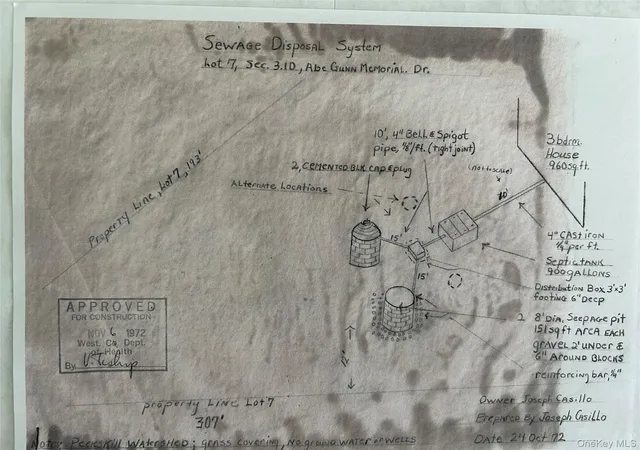 Sewage Disposal System
Lot 7, Sec. 3.1D, Abe Gunn Memorial. Dr.
10', 4" Bell & Spigot
pipe, 1/8"/ft. (tight joint)
3 bdrm.
House
960 sq.ft.
2, cemented Blk cap & plug
(not to scale)
Alternate Locations
10'
Property Line, Lot 7, 193'
15'
4" CAst iron
1/4" per ft.
Septic tank
900 gallons
15'
Distribution Box 3'x3'
footing 6" Deep
2 8' Dia. Seepage pit
151 sq ft Area Each
gravel 2' under &
6" Around Blocks
reinforcing bar, 1/4"
APPROVED
FOR CONSTRUCTION
NOV 6 1972
West. Co. Dept.
of Health
By
property Line Lot 7
307'
Owner Joseph Casillo
Prepared by Joseph Casillo
Date 24 Oct 72
Note: Peekskill Watershed; grass covering, No ground water or wells
OneKey MLS